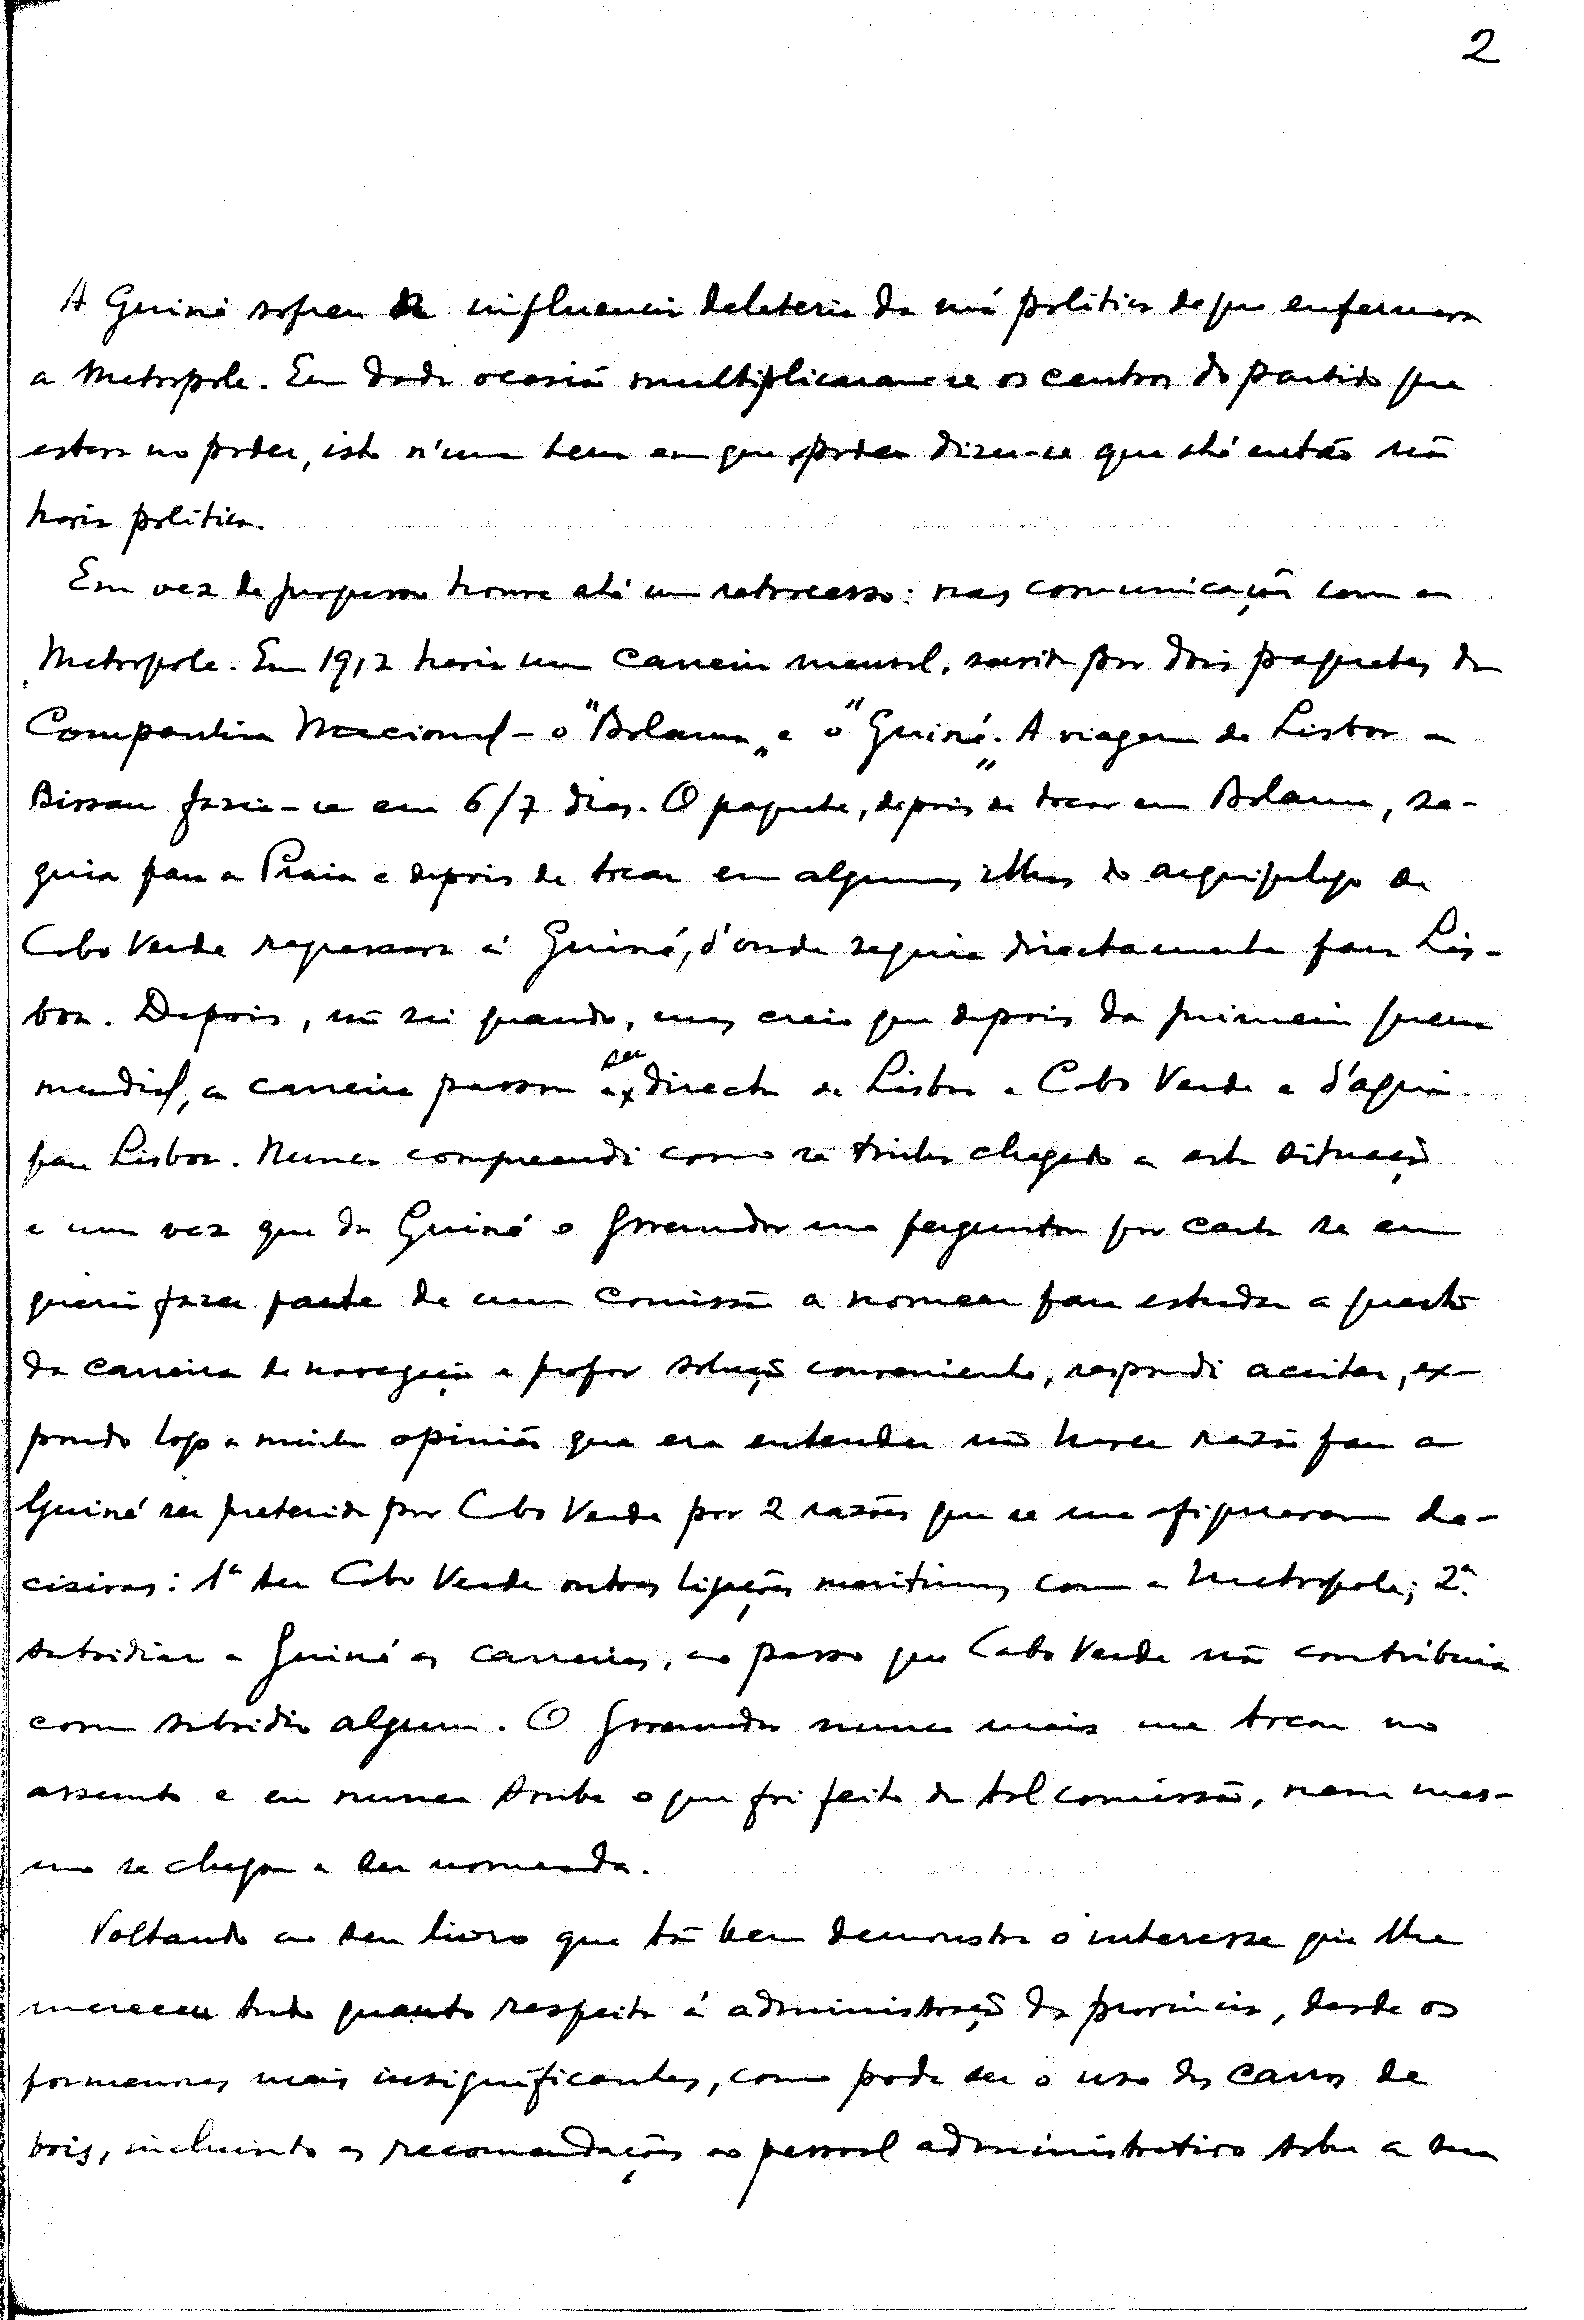 2
A Guiné sofreu a influencia deleteria da má politica de que enfermava
a Metropole. Em dada ocasião multiplicaram-se os centros do partido que
estava no poder, isto n'uma terra em que poder dizer-se que até então não
havia politica.
Em vez de progresso houve até um retrocesso: nas comunicações com a
Metropole. Em 1912 havia uma carreira mensal, servida por dois paquetes da
Companhia Nacional - o "Bolama" e o "Guiné". A viagem de Lisboa a
Bissau fazia-se em 6/7 dias. O paquete, depois de tocar em Bolama, se-
guia para a Praia e depois de tocar em algumas ilhas do arquipelago de
Cabo Verde regressava á Guiné, d'onde seguia directamente para Lis-
boa. Depois, não sei quando, mas creio que depois da primeira guerra
mundial, a carreira passou a ser directa de Lisboa a Cabo Verde e d'aqui
para Lisboa. Nunca compreendi como se tinha chegado a esta situação
e uma vez que da Guiné o Governador me perguntou por carta se eu
queria fazer parte de uma comissão a nomear para estudar a questão
da carreira de navegação e propor solução conveniente, respondi aceitar, ex-
pondo logo a minha opinião que era entender não haver razão para a
Guiné ser preterida por Cabo Verde por 2 razões que se me afiguravam de-
cisivas: 1ª ter Cabo Verde outras ligações maritimas com a Metropole; 2ª.
subsidiar a Guiné as carreiras, ao passo que Cabo Verde não contribuia
com subsidio algum. O Governador nunca mais me tocou no
assunto e eu nunca soube o que foi feito da tal comissão, nem mes-
mo se chegou a ser nomeada.
Voltando ao seu livro que tão bem demonstra o interesse que lhe
mereceu tudo quanto respeita á administração da provincia, desde os
pormenores mais insignificantes, como pode ser o uso dos carros de
bois, incluindo as recomendações ao pessoal administrativo sobre a sua